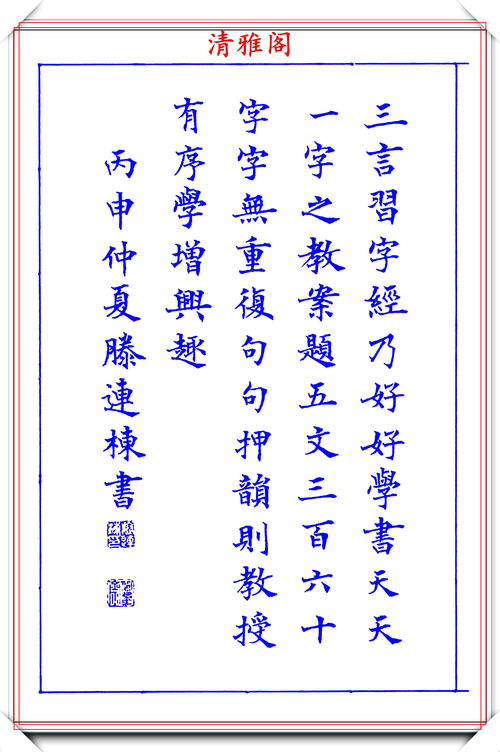 清雅阁
三言習字經乃好好學書天天
一字之教案題五文三百六十
字字無重復句句押韻則教授
有序學增興趣
丙申仲夏滕連棟書